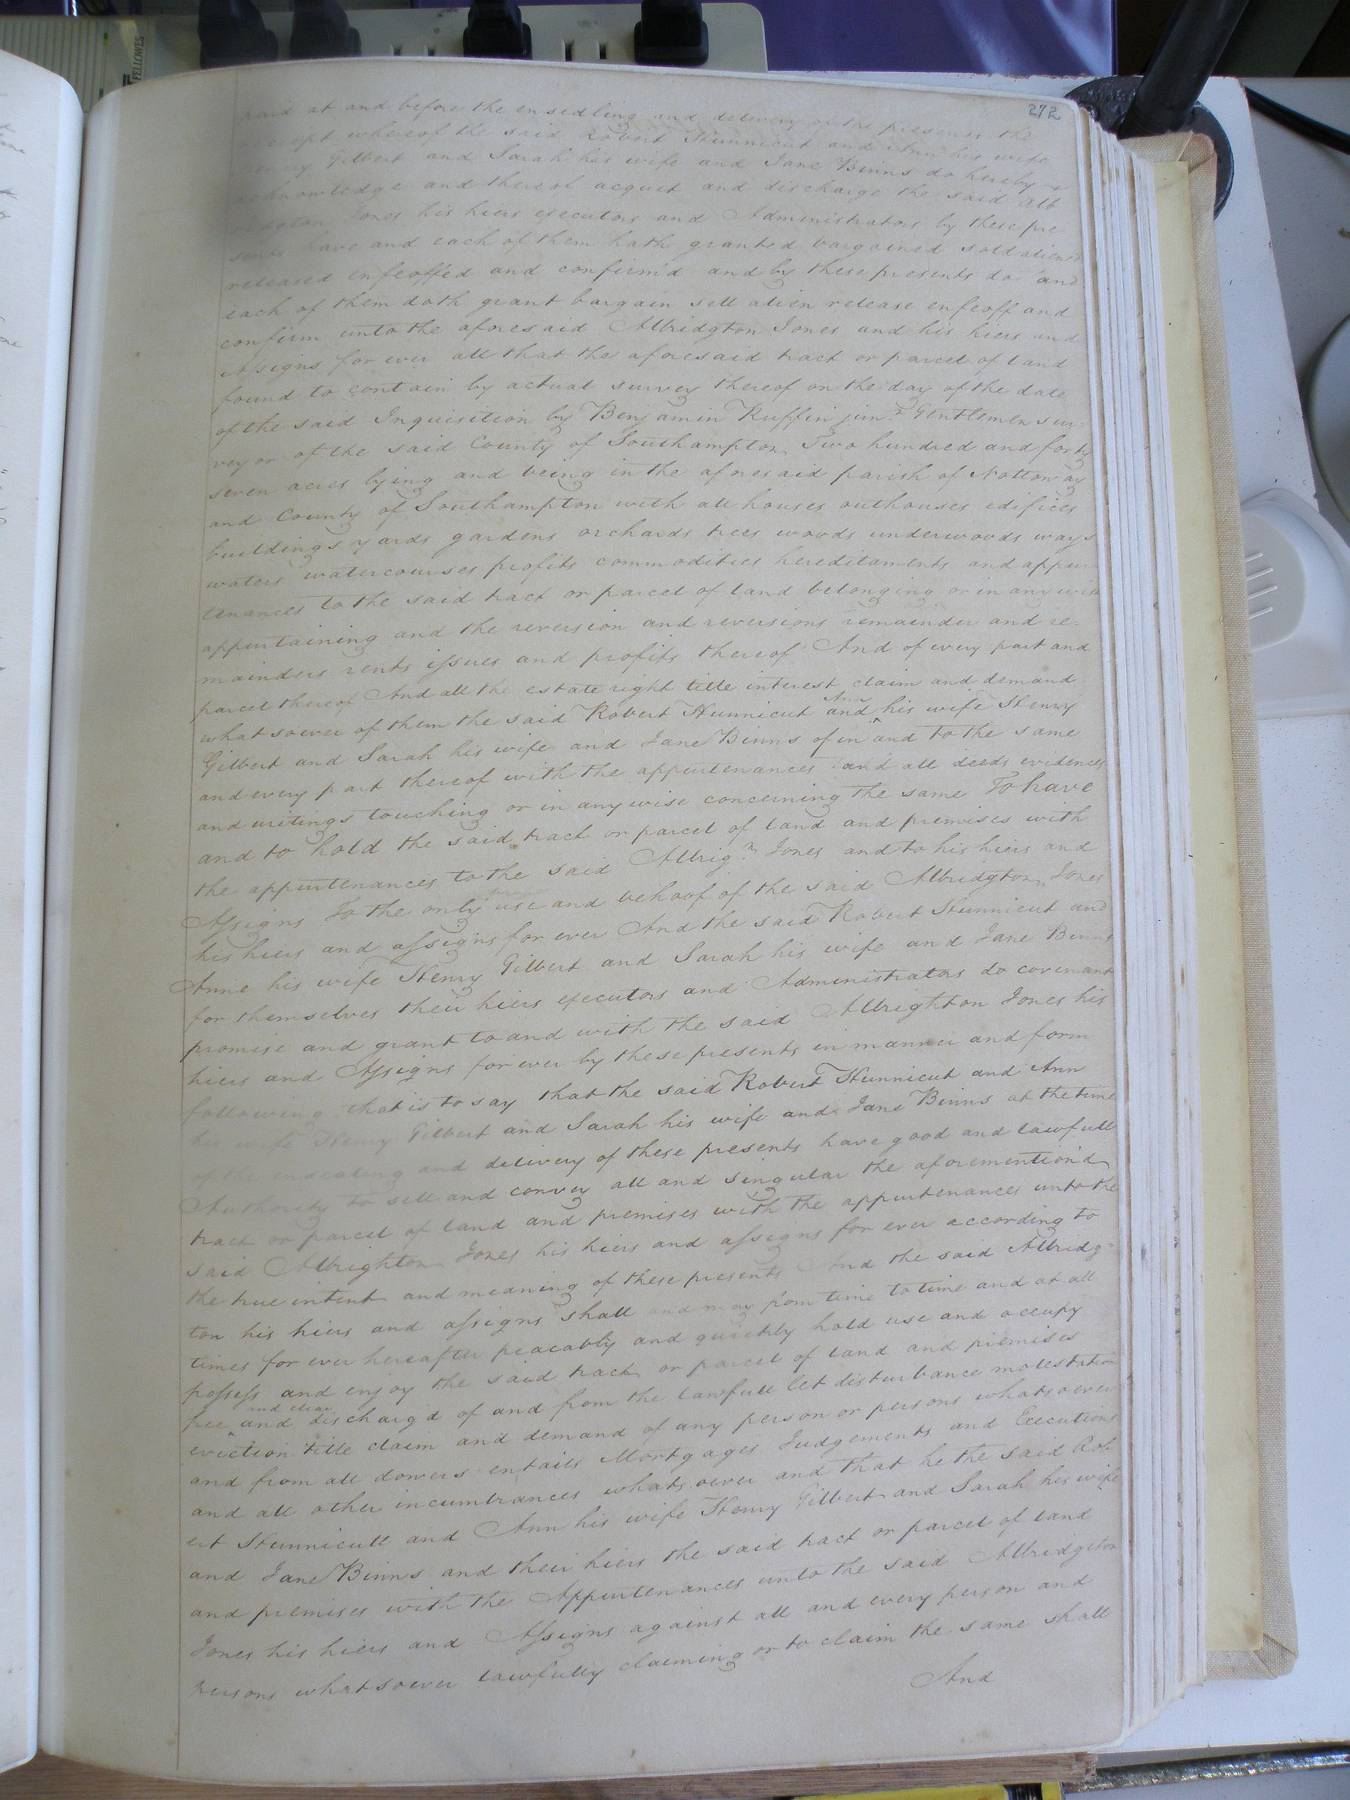 272
paid at and before the ensealing and delivery of the presents the
receipt whereof the said Robert Hunnicut and Ann his wife
Henry Gilbert and Sarah his wife and Jane Binns do hereby
acknowledge and thereof acquit and discharge the said Alb
ridgton Jones his hiers executors and Administrators by these pre
sents have and each of them hath granted bargained sold aliened
released enfeoffed and confirm'd and by these presents do and
each of them doth grant bargain sell alien release enfeoff and
confirm unto the aforesaid Albridgton Jones and his hiers and
Assigns for ever all that the aforesaid tract or parcel of land
found to contain by actual survey thereof on the day of the date
of the said Inquisition by Benjamin Ruffin junr Gentlemen sur-
veyor of the said County of Southampton Two hundred and forty
seven acres lying and being in the aforesaid parish of Nottoway
and County of Southampton with all houses outhouses edifices
buildings yards gardens orchards trees woods underwoods ways
waters watercourses profits commodities hereditaments and appur
tenances to the said tract or parcel of land belonging or in any wise
appurtaining and the reversion and reversions remainder and re-
mainders rents issues and profits thereof And of every part and
parcel thereof And all the estate right title interest claim and demand
whatsoever of them the said Robert Hunnicut and Ann his wife Henry
Gilbert and Sarah his wife and Jane Binns of in and to the same
and every part thereof with the appurtenances and all deeds evidences
and writings touching or in any wise concerning the same To have
and to hold the said tract or parcel of land and premises with
the appurtenances to the said Albrign Jones and to his hiers and
Assigns To the only use and behoof of the said Albridgton Jones
his hiers and assigns for ever And the said Robert Hunnicut and
Anne his wife Henry Gilbert and Sarah his wife and Jane Binns
for themselves their hiers executors and Administrators do covenant
promise and grant to and with the said Albrighton Jones his
hiers and Assigns for ever by these presents in manner and form
following that is to say that the said Robert Hunnicut and Ann
his wife Henry Gilbert and Sarah his wife and Jane Binns at the time
of the ensealing and delivery of these presents have good and lawfull
Authority to sell and convey all and singular the aforemention'd
tract or parcel of land and premises with the appurtenances unto the
said Albrighton Jones his hiers and assigns for ever according to
the true intent and meaning of these presents And the said Albridg-
ton his hiers and assigns shall and may from time to time and at all
times for ever hereafter peacably and quickly hold use and occupy
possess and enjoy the said tract or parcel of land and premises
free and clear and discharg'd of and from the lawfull let disturbance molestation
eviction title claim and demand of any person or persons whatsoever
and from all dowers entails Mortgages Judgements and Executions
and all other incumbrances whatsoever and that he the said Rob
ert Hunnicutt and Ann his wife Henry Gilbert and Sarah his wife
and Jane Binns and their hiers the said tract or parcel of land
and premises with the Appurtenances unto the said Albridgton
Jones his hiers and Assigns against all and every person and
persons whatsoever lawfully claiming or to claim the same shall
And
FELLOWES